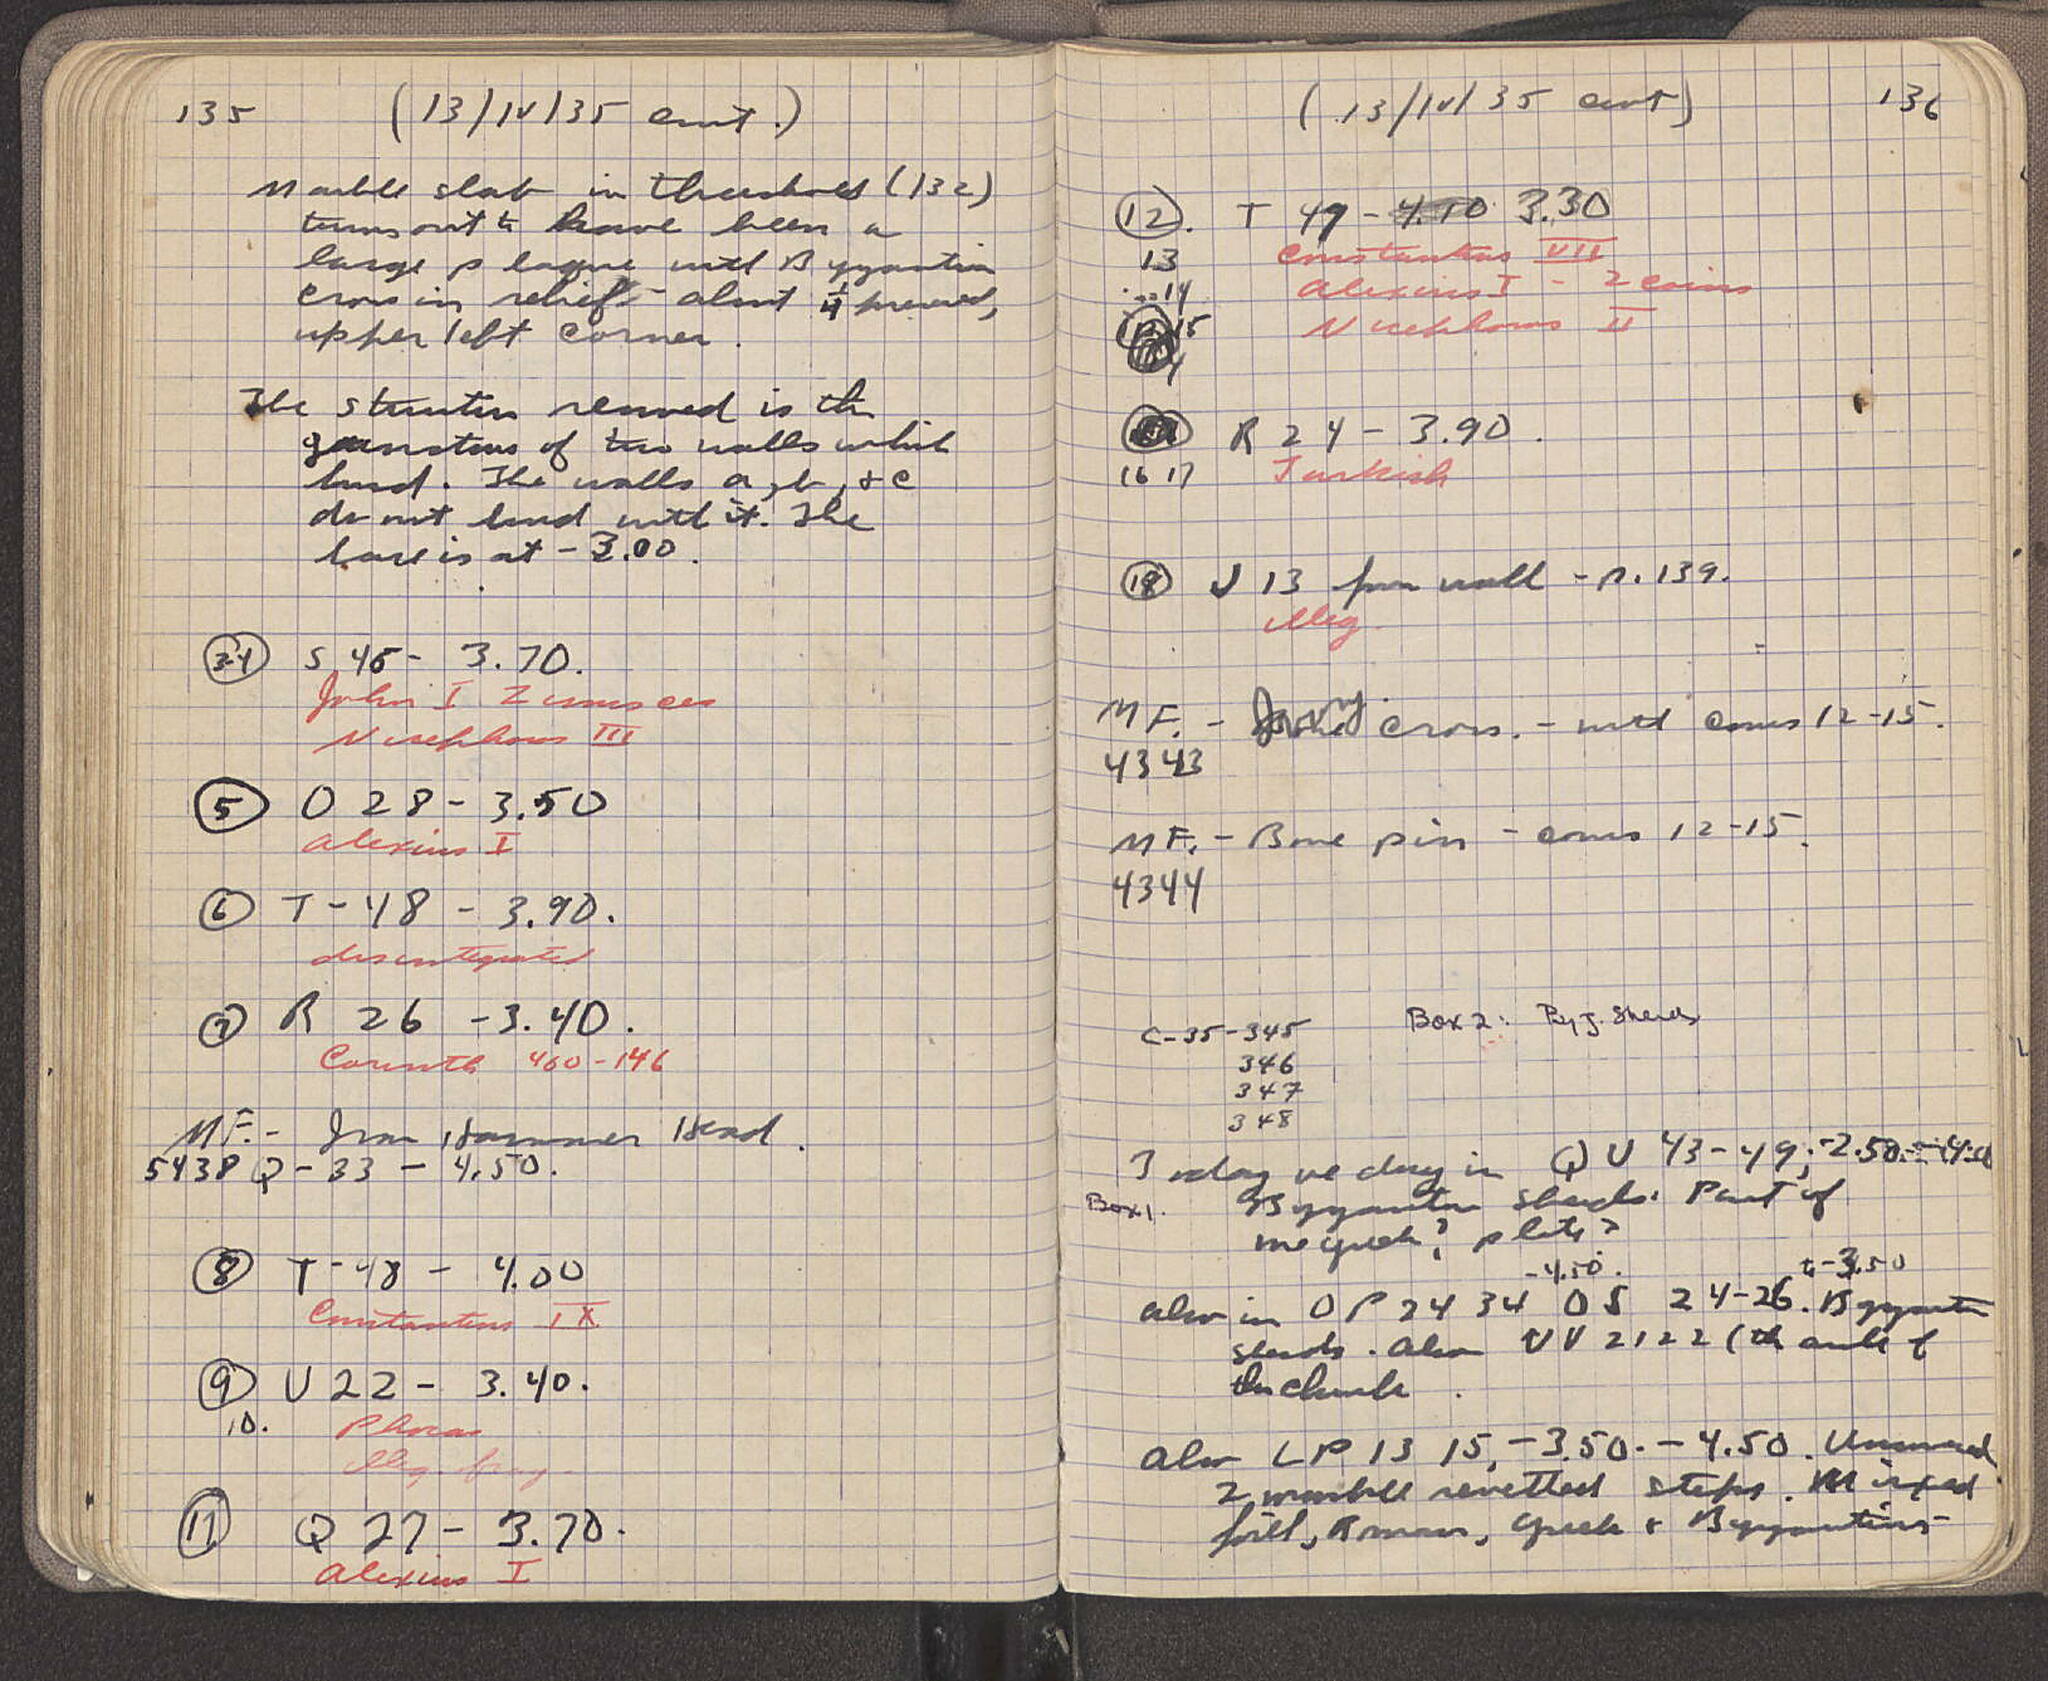 135 (13/IV/35 cont.)
Marble slab in threshold (132)
turns out to have been a
large plaque with Byzantine
cross in relief - about 1/4 preserved,
upper left corner.
The structure removed is the
of two walls which
bond. The walls a, b, & c
do not bond with it. The
base is at - 3.00.
34 S 45 - 3.70.
John I Zimisces
Nicephorus III
5 O 28 - 3.50
Alexius I
6 T - 48 - 3.90.
disintegrated
7 R 26 - 3.40.
Corinth 400-146
MF. - Iron Hammer Head.
5438 Q - 33 - 4.50.
8 T - 48 - 4.00
Constantine IX
9 U 22 - 3.40.
10. Phocas
Illeg. frag.
11 Q 27 - 3.70.
Alexius I
(13/IV/35 cont) 136
12. T 49 - 4.10 3.30
13 Constantine VII
14 Alexius I - 2 coins
15 Nicephorus II
R 24 - 3.90.
16 17 Turkish
18 U 13 from wall - p. 139.
Illeg.
MF. - cross. - with coins 12-15.
4343
MF. - Bone pin - coins 12-15.
4344
C-35-345 Box 2: Byz. Sherds
346
347
348
Today we dug in QU 43-49; -2.50 - -4.00
Box 1. Byzantine sherds. Part of
plate?
-4.50. to -3.50
Also in OP 24 34 OS 24-26. Byzantine
sherds. Also UV 21 22 (the
the church.
Also LP 13 15, -3.50 - -4.50. Uncovered
2 marble revetted steps. Mixed
fill, Roman, Greek & Byzantine